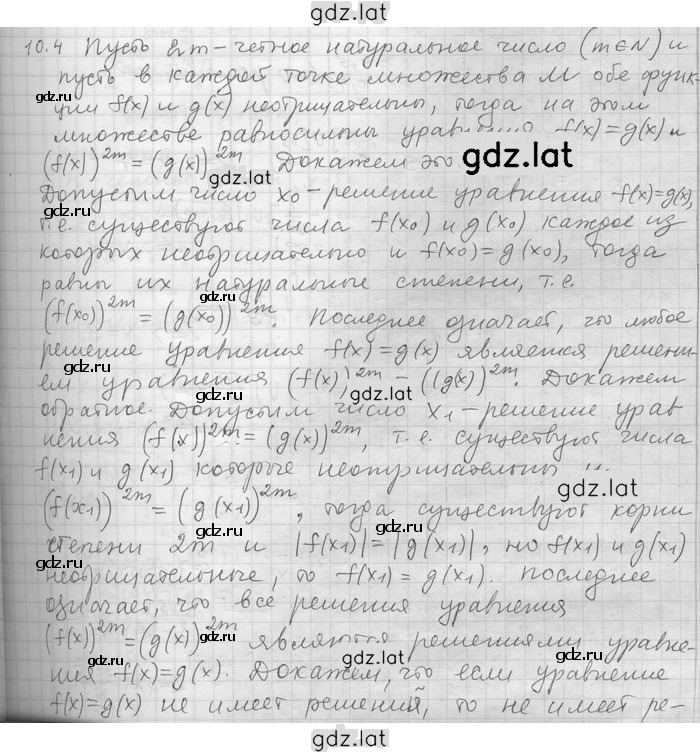 gdz.lat
10.4 Пусть 2m - четное натуральное число (m∈N) и
пусть в каждой точке множества M обе функ-
ции f(x) и g(x) неотрицательны, тогда на этом
множестве равносильны уравнения f(x)=g(x) и
(f(x))^2m = (g(x))^2m. Докажем это
Допустим число x₀ - решение уравнения f(x)=g(x),
т.е. существуют числа f(x₀) и g(x₀) каждое из
которых неотрицательно и f(x₀)=g(x₀), тогда
равны их натуральные степени, т.е.
(f(x₀))^2m = (g(x₀))^2m. Последнее означает, что любое
решение уравнения f(x)=g(x) является решени-
ем уравнения (f(x))^2m = ((g(x))^2m. Докажем
обратное. Допустим число x₁ - решение урав
нения (f(x))^2m = (g(x))^2m, т.е. существуют числа
f(x₁) и g(x₁) которые неотрицательны и
(f(x₁))^2m = (g(x₁))^2m, тогда существуют корни
степени 2m и |f(x₁)|=|g(x₁)|, но f(x₁) и g(x₁)
неотрицательные, то f(x₁)=g(x₁). Последнее
означает, что все решения уравнения
(f(x))^2m=(g(x))^2m являются решениями уравне-
ния f(x)=g(x). Докажем, что если уравнение
f(x)=g(x) не имеет решений, то не имеет ре-
gdz.lat